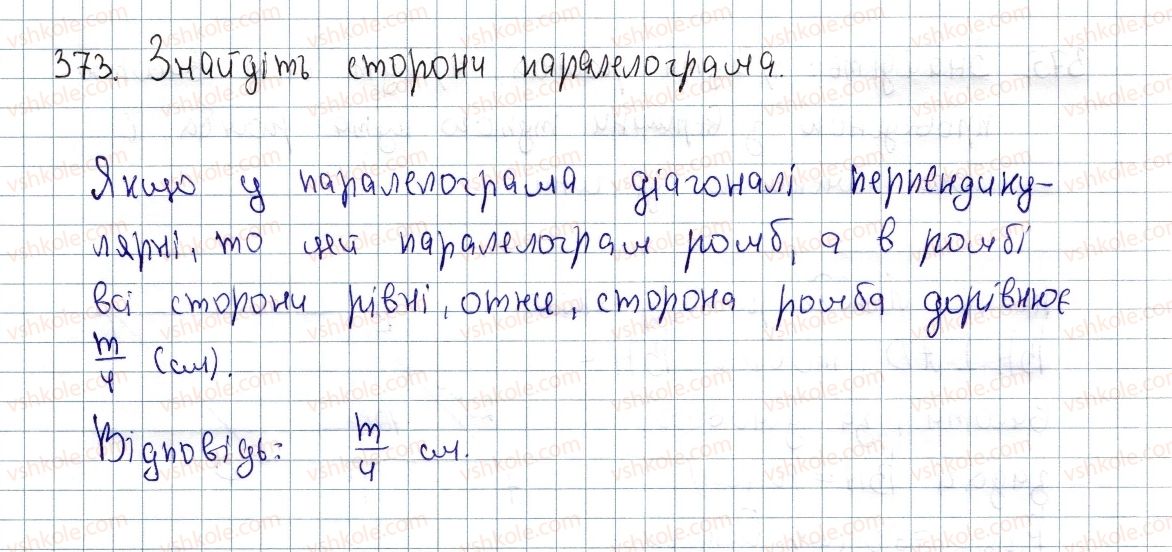 373. Знайдіть сторони паралелограма.
Якщо у паралелограма діагоналі перпендику-
лярні, то цей паралелограм ромб, а в ромбі
всі сторони рівні, отже, сторона ромба дорівнює
m/4 (см).
Відповідь: m/4 см.